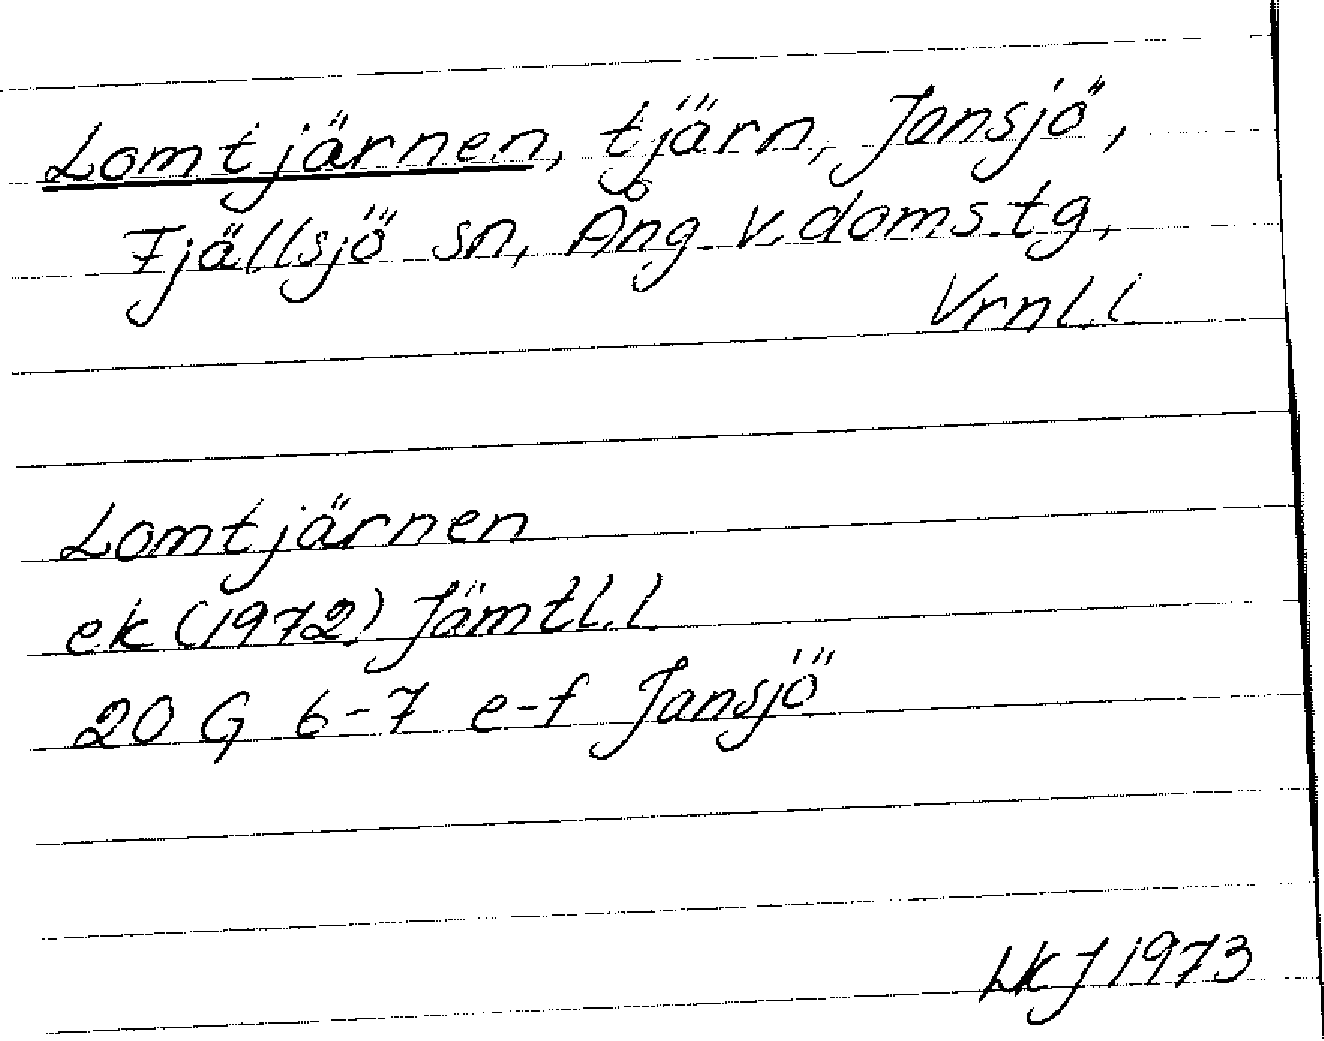 Lomtjärnen, tjärn, Jansjö,
Fjällsjö sn, Ång v. domstg,
Vrnl. l
Lomtjärnen
ek (1972) Jämtl. l
20 G 6-7 e-f Jansjö
LKJ 1973